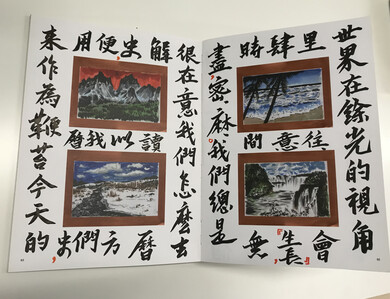 世界在餘光的視角
里往會
肆意生長
時間無
盡密麻我們總是
很在意我們怎麼去
解讀曆
史以方
便我們
用曆史
來作為鞭苔今天的